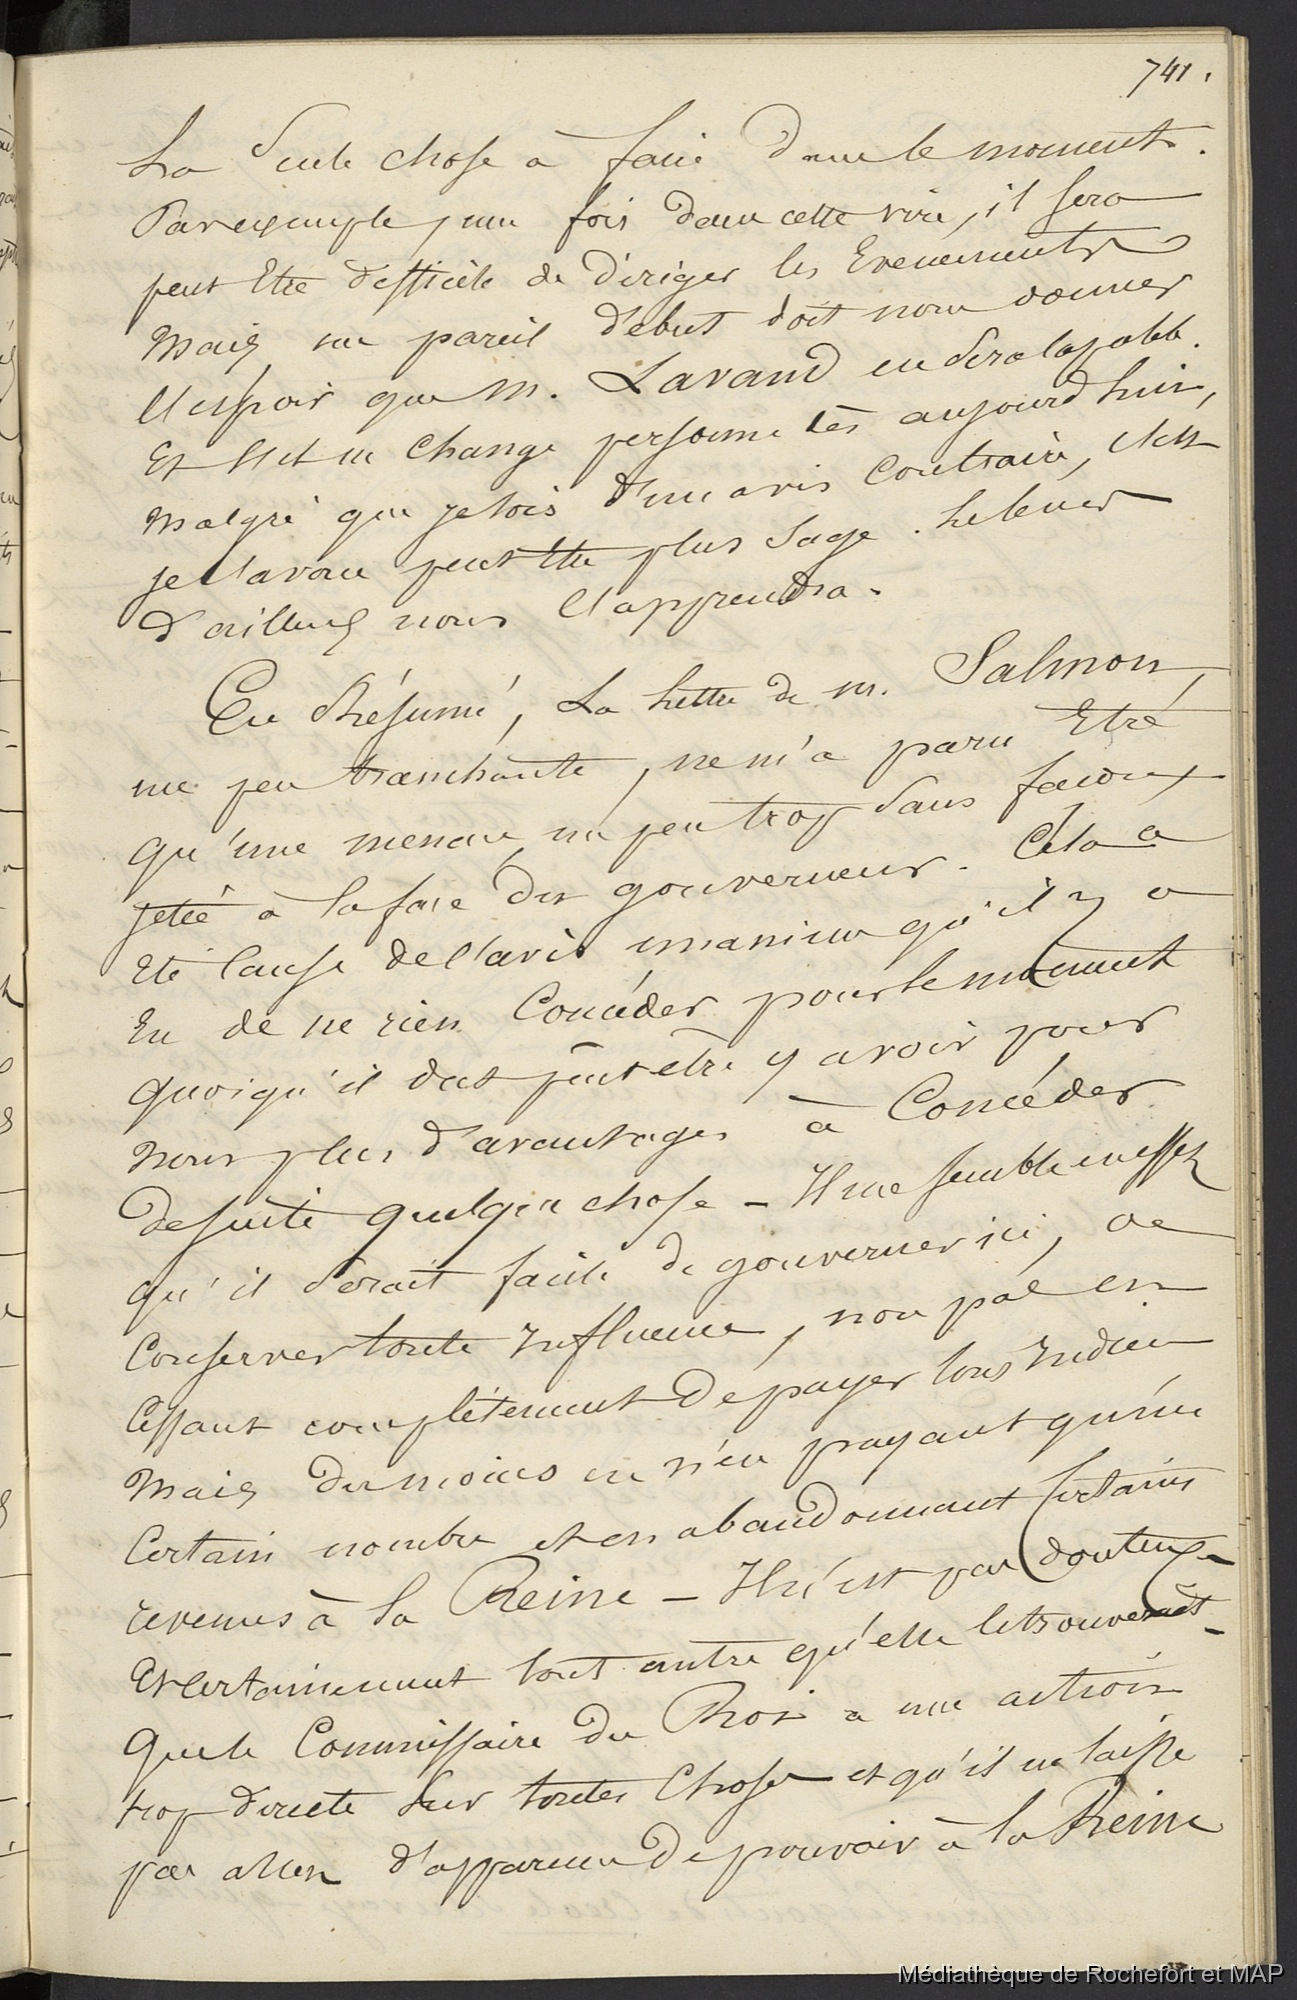 741.
La Seule chose à faire dans le moment.
Par exemple, une fois dans cette voie, il sera
peut Etre difficile de diriger les Evenements
Mais un pareil début doit nous donner
l'Espoir que M. Lavaud en Sera capable.
Et s'il ne change personne dès aujourd'huis,
Malgré que je sois d'un avis Contraire, c'est
je l'avoue peut Etre plus Sage.
d'ailleurs nous l'apprendra.
En Résumé, La Lettre de m. Salmon,
une peu tranchante, ne m'a paru Etre
qu'une menace un peu trop Sans facons
jetée à la face du gouverneur. Cela a
Eté Cause de l'avis unanime qu'il y a
Eu de ne rien Concéder pour le moment
quoiqu'il dut peut etre y avoir pour
Nous plus d'avantages à Concéder
de suite quelque chose - Il me semble en effet
qu'il Serait facile de gouverner ici, de
Conserver toute Influence, non pas en
Cessant complètement de payer tous Indiens
Mais du moins en n'en payant qu'un
Certain nombre et en abandonnant Certains
revenus à la Reine - Il n'est pas douteux
Et certainement tout autre qu'elle le trouverait -
Que le Commissaire du Roi a une action
trop directe Sur toutes Choses et qu'il ne laisse
pas assez d'apparence de pouvoir à la Reine
Médiathèque de Rochefort et MAP